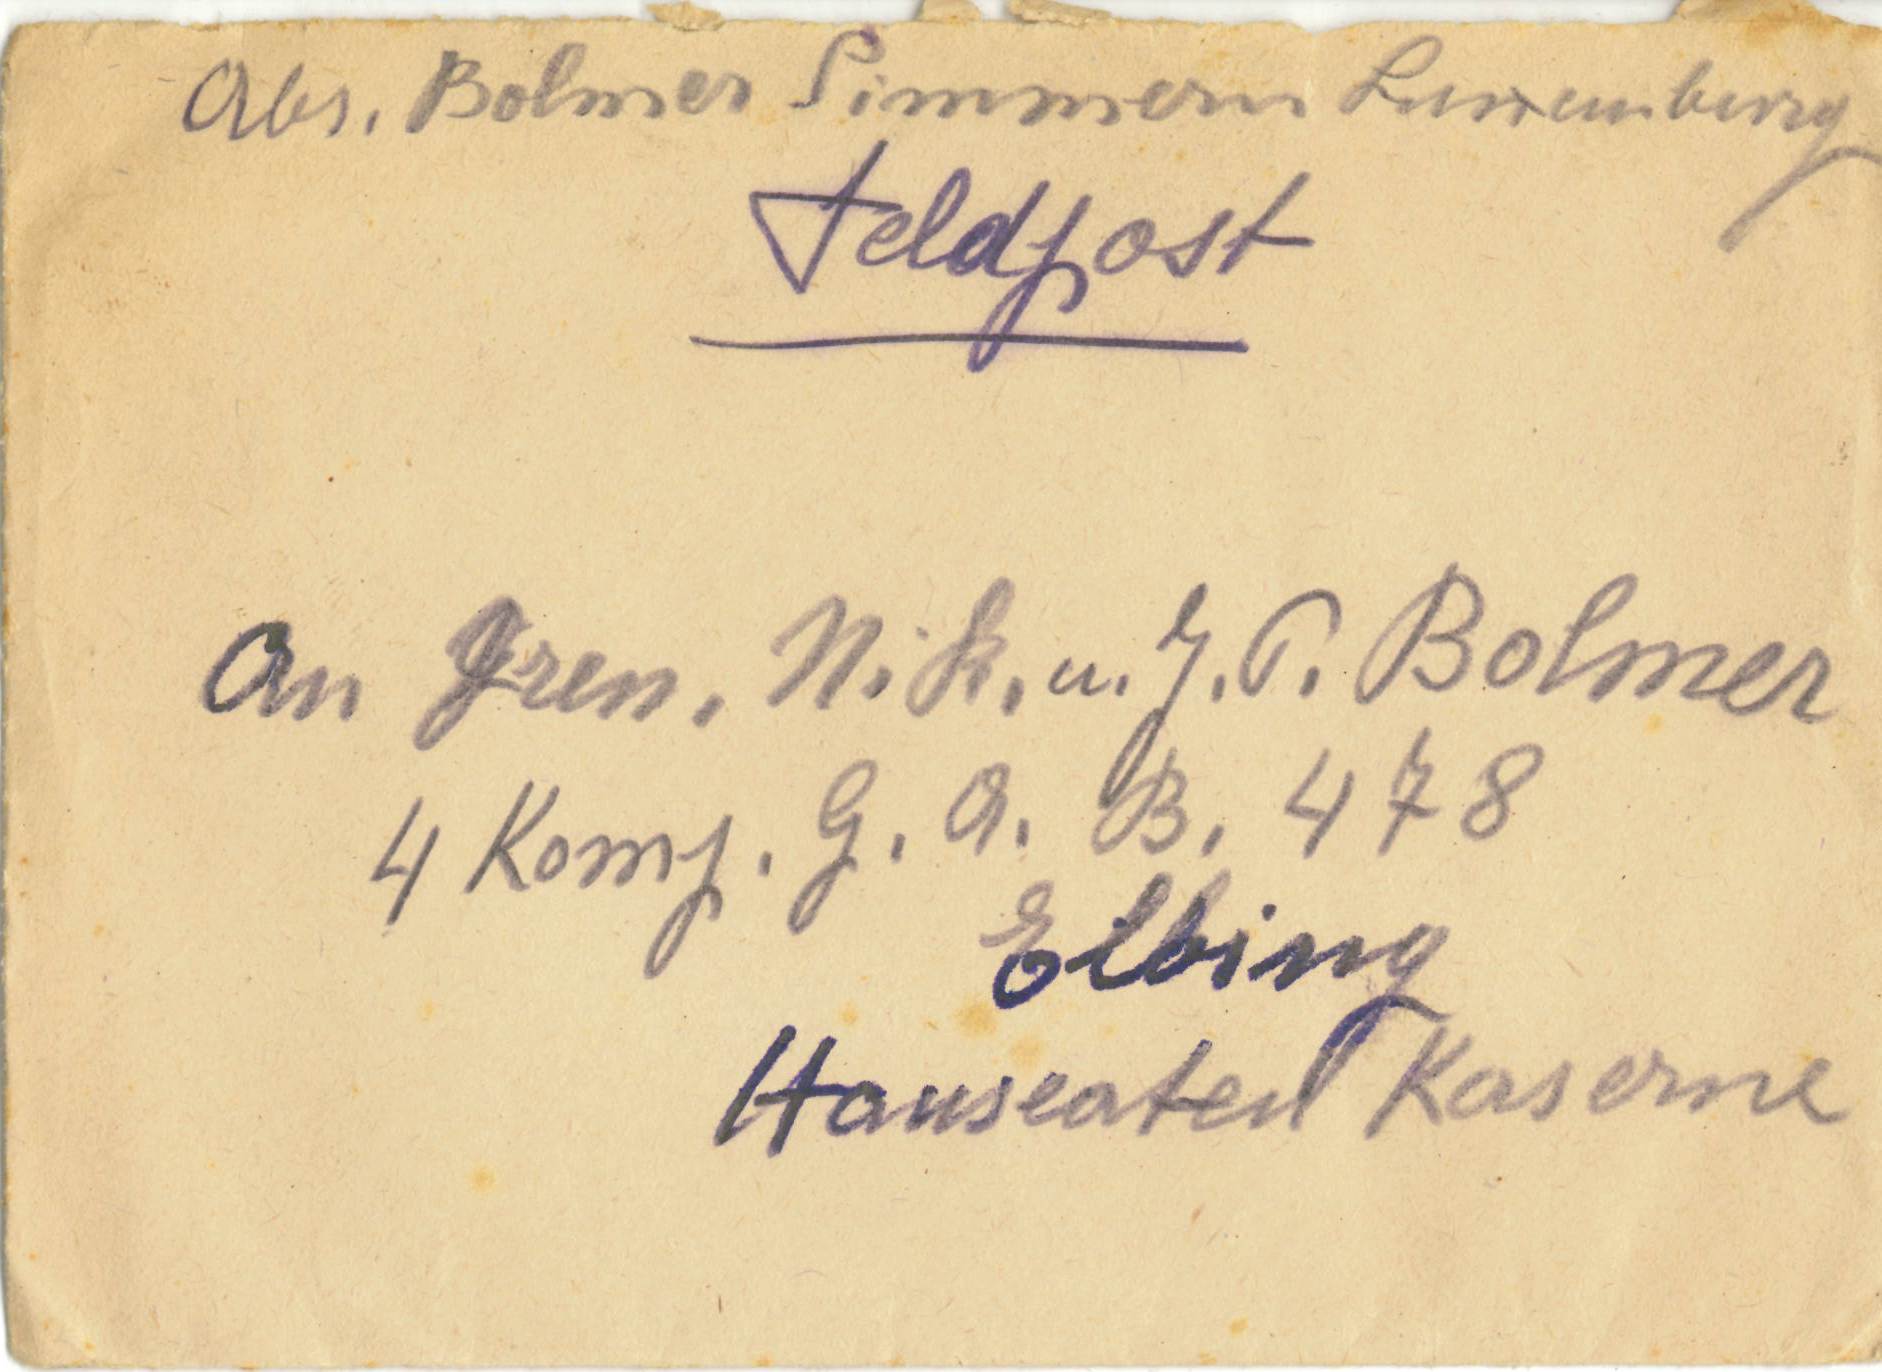 Abs. Bolmer Simmern Luxemburg
Feldpost
An Gren. Nik. u. J. P. Bolmer
4 Komp. G. A. B. 478
Elbing
Hanseaten Kaserne